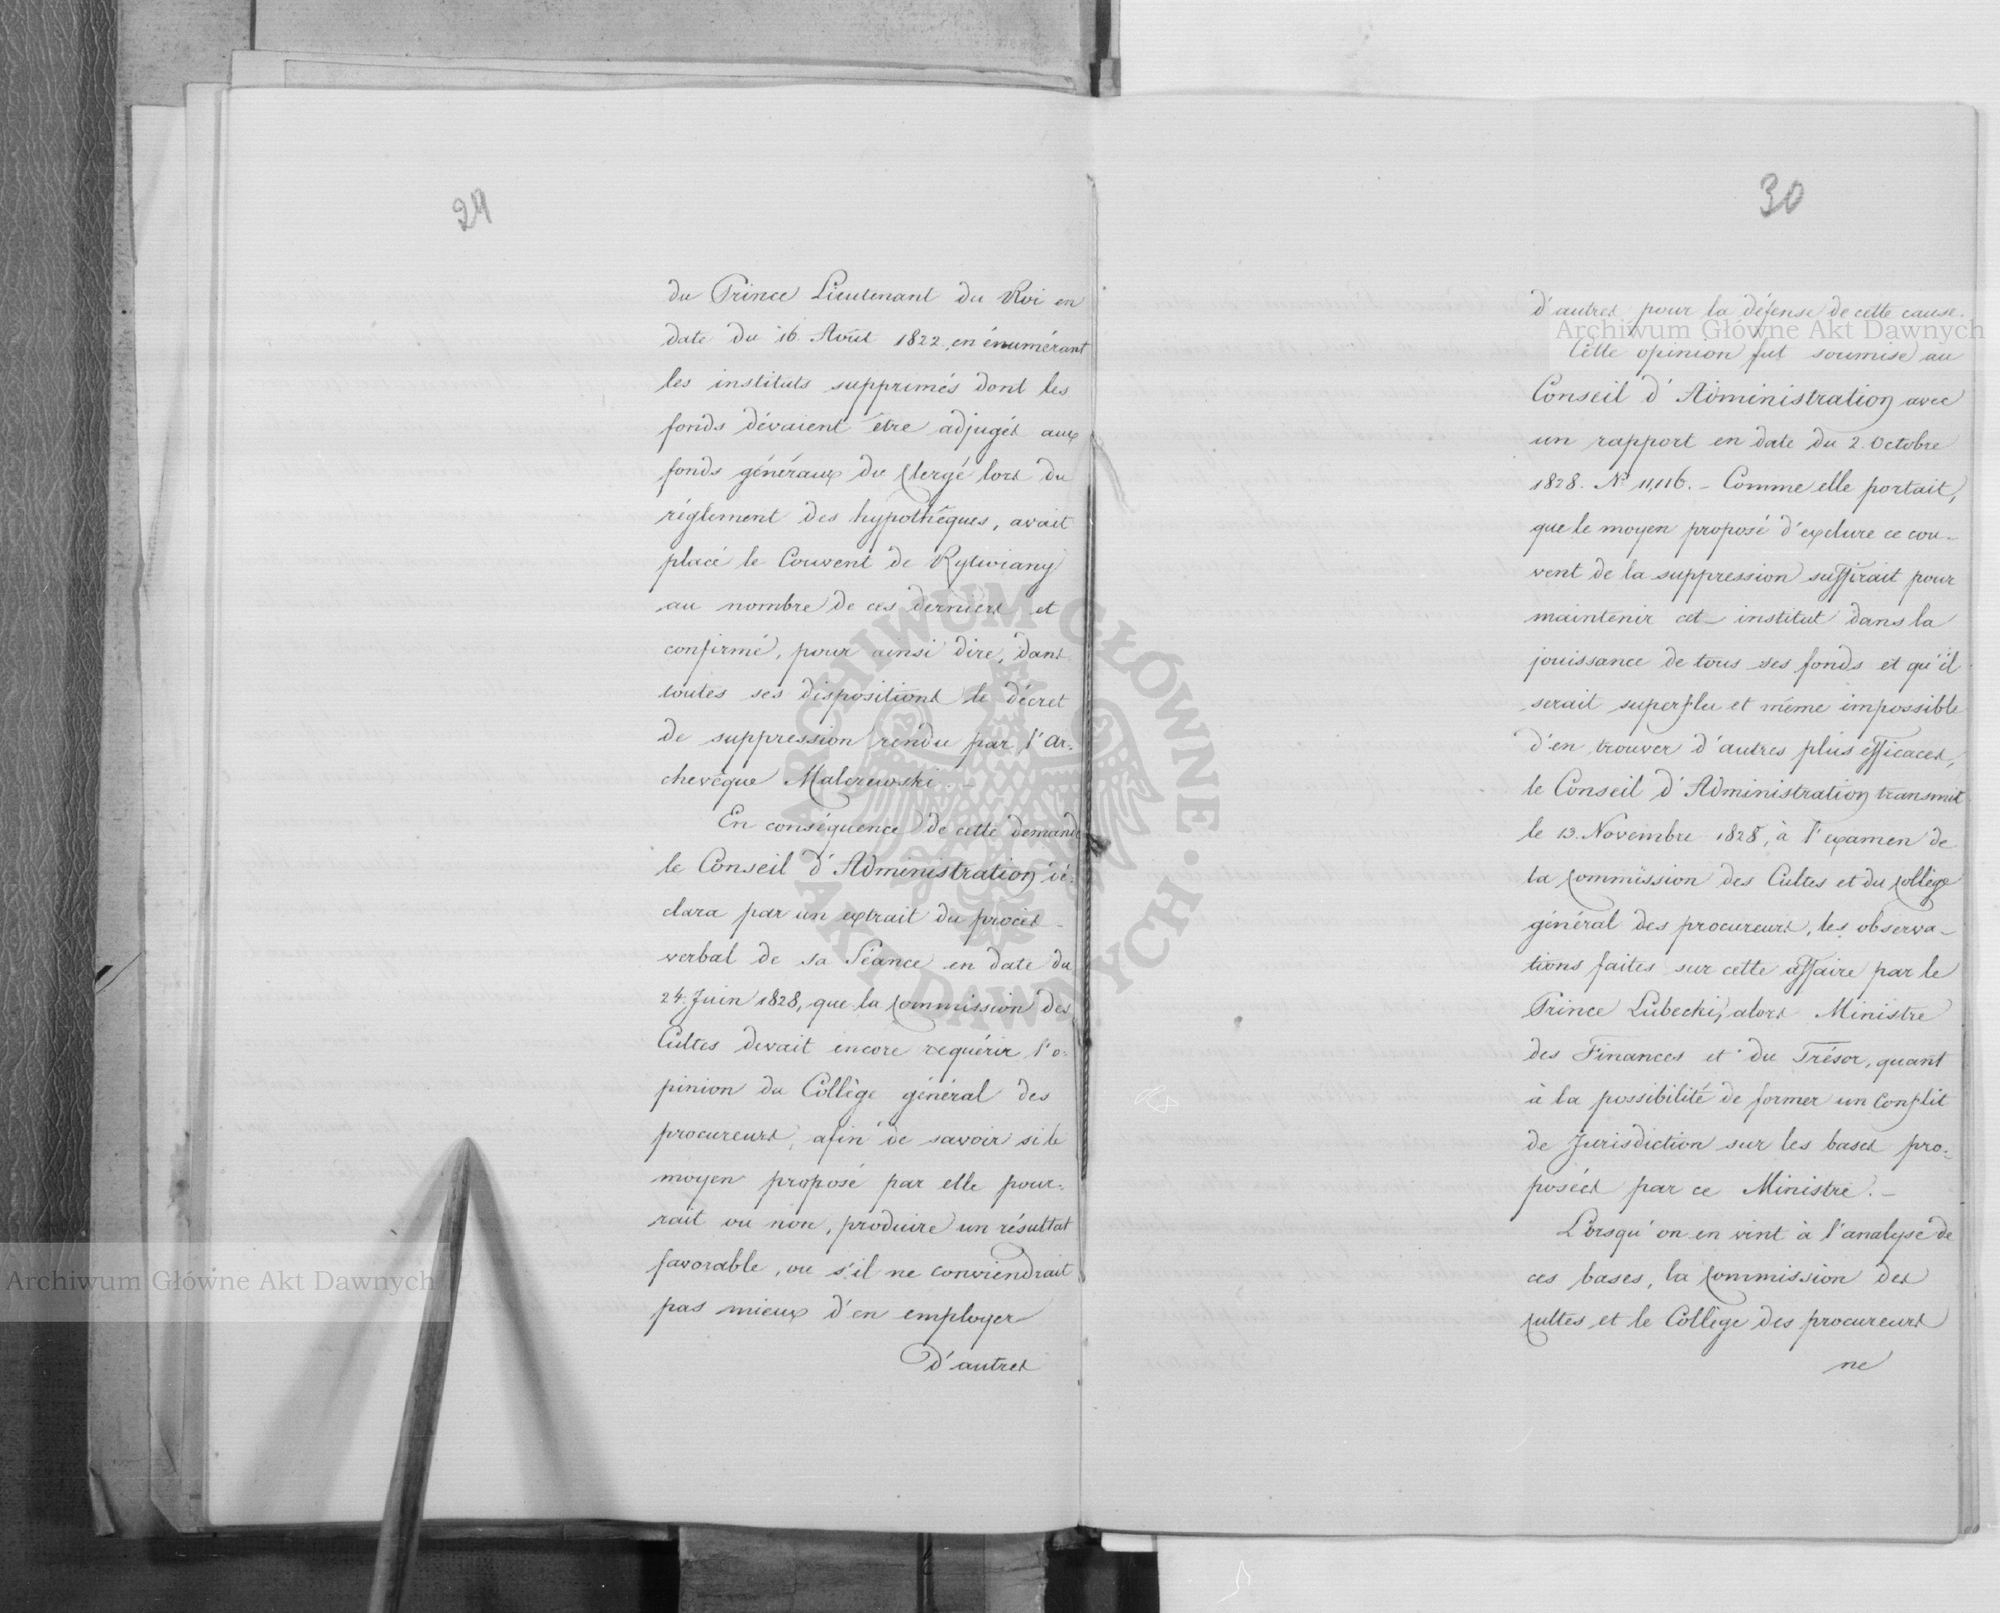 29
du Prince Lieutenant du Roi en
date du 16. Août 1822. en énumérant
les instituts supprimés dont les
fonds dévaient être adjugés aux
fonds généraux du Clergé lors du
réglement des hypothêques, avait
placé le Couvent de Rytwiany
au nombre de ces derniers et
confirmé, pour ainsi dire, dans
toutes ses dispositions le décret
de suppression rendu par l'Ar-
chevêque Malczewski. –
En conséquence de cette demande
le Conseil d'Administration dé-
clara par un extrait du procès-
verbal de sa Séance en date du
24. Juin 1828, que la Commission des
Cultes devait encore requérir l'o-
pinion du Collège général des
procureurs, afin de savoir si le
moyen proposé par elle pour-
rait ou non, produire un résultat
favorable, ou s'il ne conviendrait
pas mieux d'en employer
d'autres
30
d'autres pour la défense de cette cause.
Cette opinion fut soumise au
Conseil d'Administration avec
un rapport en date du 2. Octobre
1828. No 11,116. – Comme elle portait,
que le moyen proposé d'exclure ce cou-
vent de la suppression suffirait pour
maintenir cet institut dans la
jouissance de tous ses fonds et qu'il
serait superflu et même impossible
d'en trouver d'autres plus efficaces,
le Conseil d'Administration transmit
le 13. Novembre 1828, à l'examen de
la Commission des Cultes et du Collège
général des procureurs, les observa-
tions faites sur cette affaire par le
Prince Lubecki, alors Ministre
des Finances et du Trésor, quant
à la possibilité de former un Conflit
de Jurisdiction sur les bases pro-
posées par ce Ministre. –
Lorsqu'on en vint à l'analyse de
ces bases, la Commission des
Cultes et le Collège des procureurs
ne
Archiwum Główne Akt Dawnych
Archiwum Główne Akt Dawnych
ARCHIWUM GŁÓWNE AKT DAWNYCH